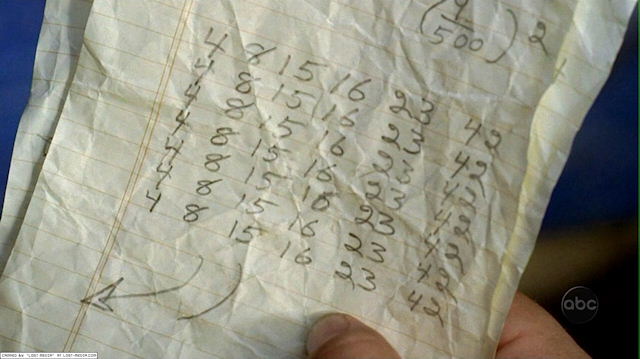 500
2
4 8 15 16 23 42
4 8 15 16 23 42
4 8 15 16 23 42
4 8 15 16 23 42
4 8 15 16 23 42
4 8 15 16 23 42
4 8 15 16 23 42
abc
CAPPED BY: "LOST-MEDIA" AT LOST-MEDIA.COM